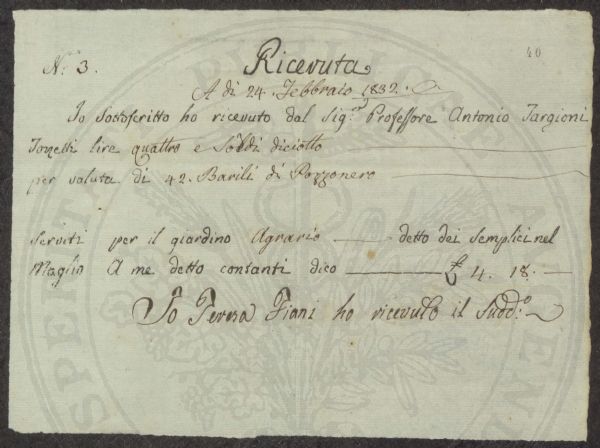 N: 3.
Ricevuta
40
A di 24. Febbraio 1832.
Io Sottoscritto ho ricevuto dal Sig:re Professore Antonio Targioni
Tozzetti lire quattro e Soldi diciotto
per valuta di 42. Barili di Pozzonero
Serviti per il giardino Agrario detto dei Semplici nel
Maglio A me detto contanti dico £ 4. 18.
Io Teresa Fiani ho ricevuto il Sudd:o